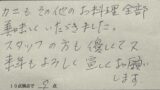 カニもその他のお料理全部
美味しくいただきました。
スタッフの方も優しくて
来年もよろしく宜しくお願い
します
10点満点で